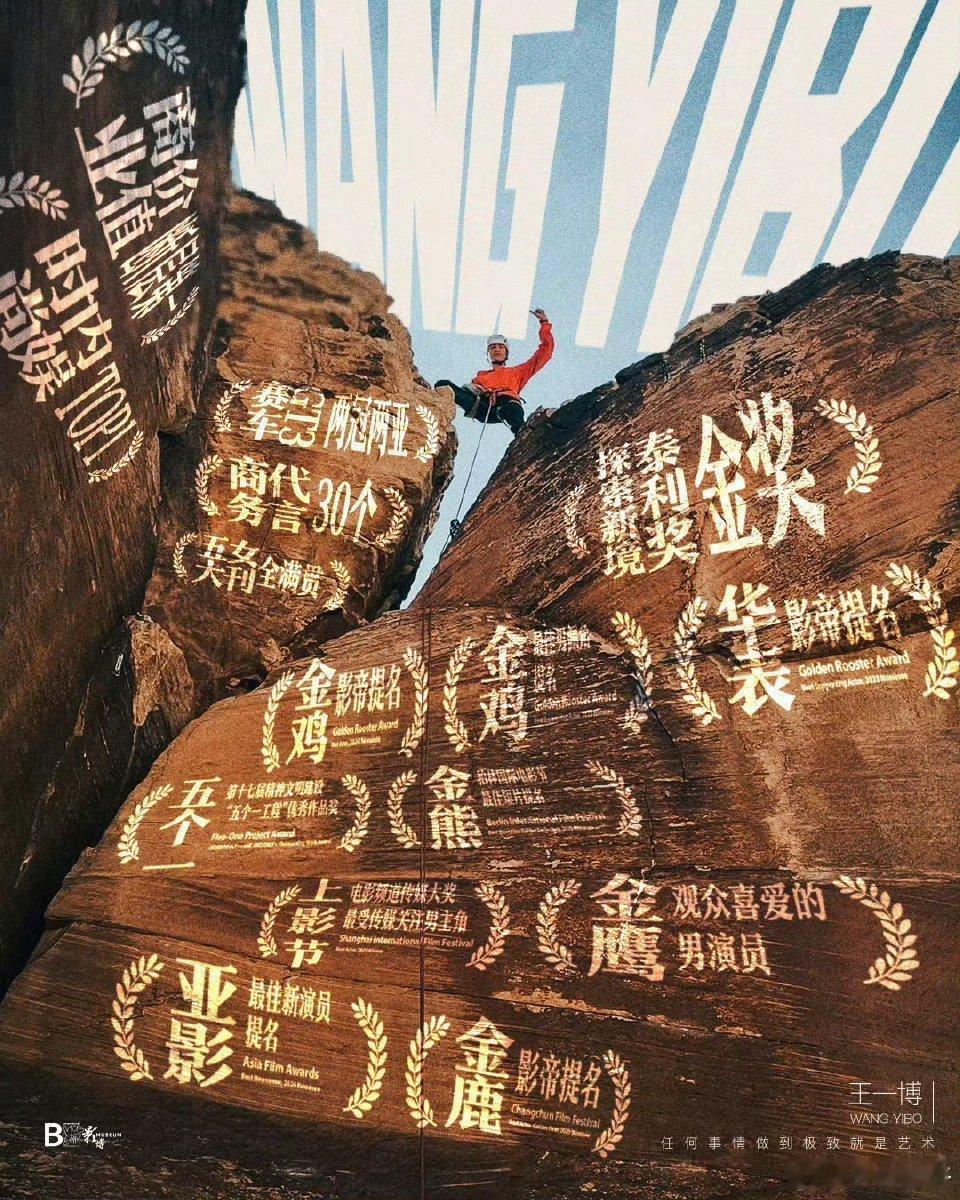 WANG YIB
商业价值
时尚
内娱TOP1
赛车
2023
两冠两亚
商务代言30个
五大名刊全满贯
探索新境
泰利奖
金奖
华表
影帝提名
Golden Rooster Award
金鸡
影帝提名
Golden Rooster Award
金鸡
提名
Golden Rooster Award
五个一
第十七届精神文明建设
“五个一工程”优秀作品奖
Five-One Project Award
金熊
柏林国际电影节
最佳短片提名
Berlin International Film Festival
上影节
电影频道传媒大奖
最受传媒关注男主角
Shanghai International Film Festival
金鹰
观众喜爱的
男演员
亚影
最佳新演员
提名
Asia Film Awards
Best Newcomer, 2024 Nominees
金鹿
影帝提名
Changchun Film Festival
王一博
WANG YIBO
任何事情做到极致就是艺术
B
MUSEUM